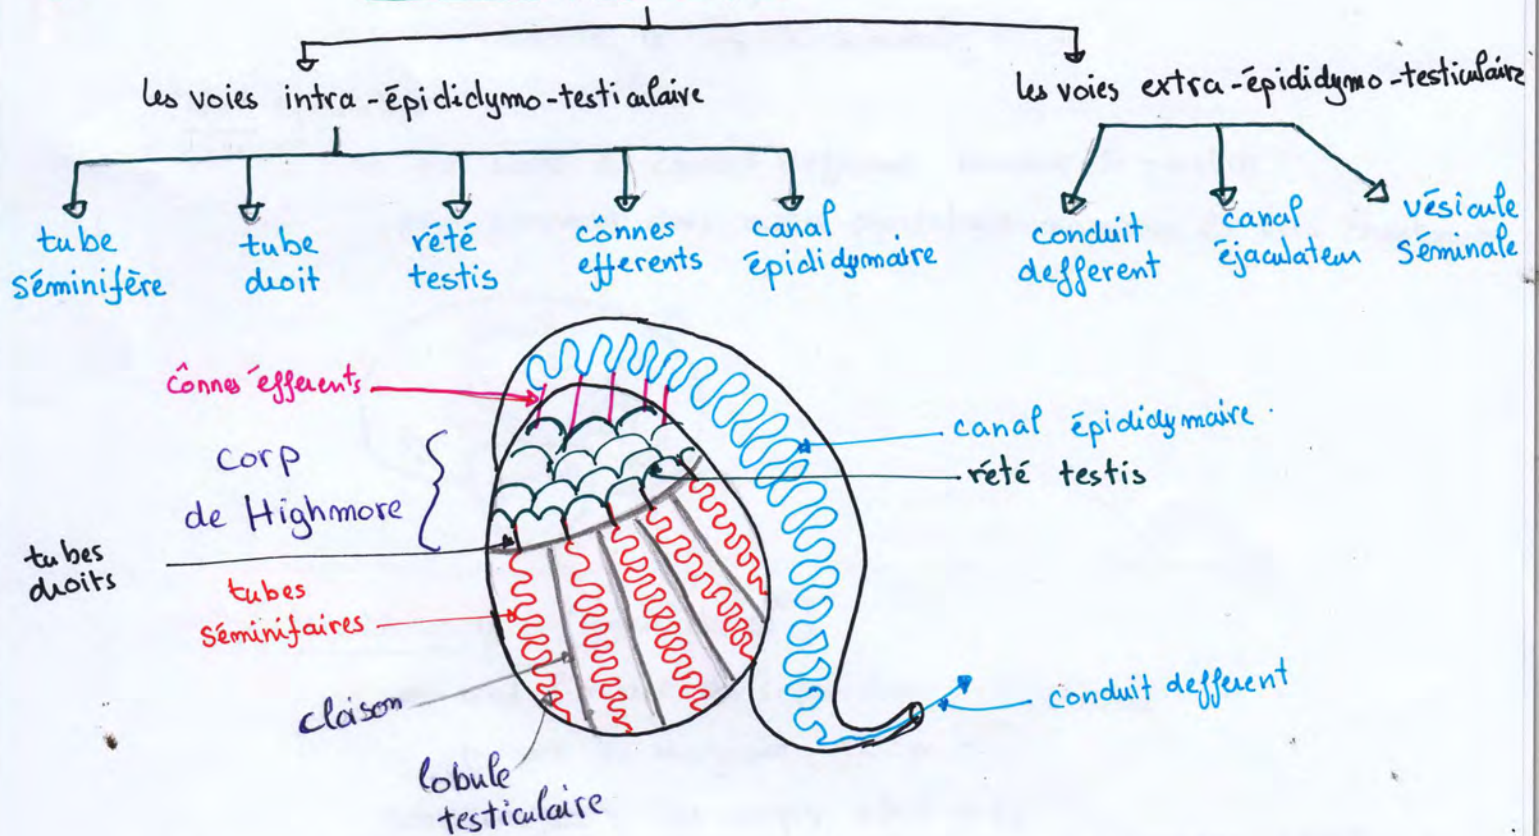 les voies intra-épididymo-testiculaire
les voies extra-épididymo-testiculaire
tube
séminifère
tube
droit
rété
testis
cônnes
efferents
canal
épididymaire
conduit
defferent
canal
éjaculateur
vésicule
séminale
cônnes efferents
corp
de Highmore
tubes
droits
tubes
séminifaires
claison
lobule
testiculaire
canal épididymaire
rété testis
conduit defferent